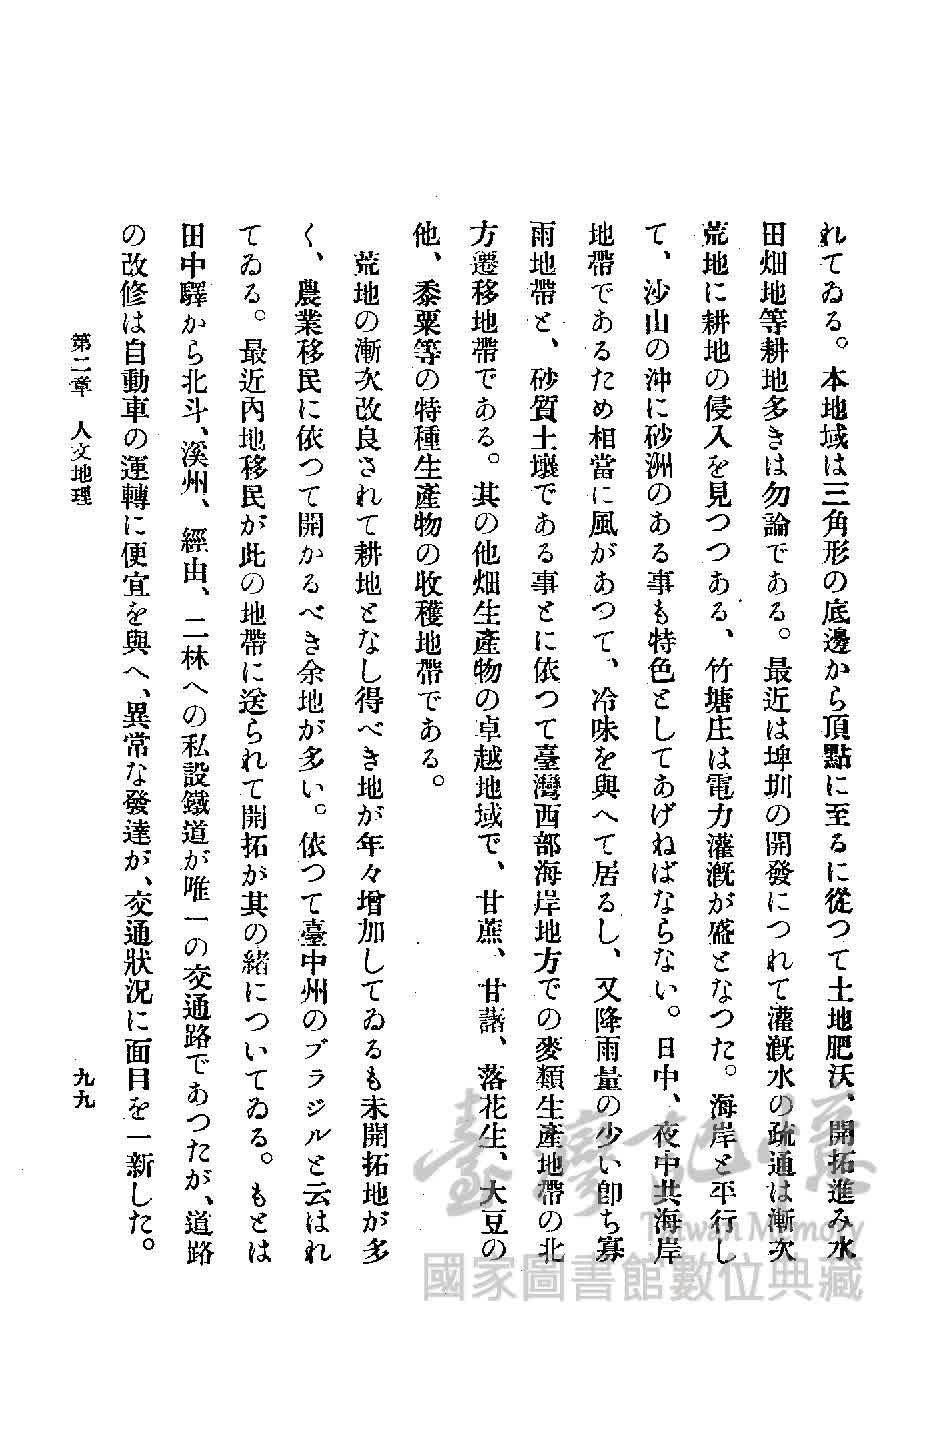 れてゐる。本地域は三角形の底邊から頂點に至るに從つて土地肥沃、開拓進み水
田畑地等耕地多きは勿論である。最近は埤圳の開發につれて灌漑水の疏通は漸次
荒地に耕地の侵入を見つつある、竹塘庄は電力灌漑が盛となつた。海岸と平行し
て、沙山の沖に砂洲のある事も特色としてあげねばならない。日中、夜中共海岸
地帶であるため相當に風があつて、冷味を與へて居るし、又降雨量の少い卽ち寡
雨地帶と、砂質土壤である事とに依つて臺灣西部海岸地方での麥類生產地帶の北
方遷移地帶である。其の他畑生產物の卓越地域で、甘蔗、甘藷、落花生、大豆の
他、黍粟等の特種生產物の收穫地帶である。
荒地の漸次改良されて耕地となし得べき地が年々增加してゐるも未開拓地が多
く、農業移民に依つて開かるべき余地が多い。依つて臺中州のブラジルと云はれ
てゐる。最近內地移民が此の地帶に送られて開拓が其の緖についてゐる。もとは
田中驛から北斗、溪州、經由、二林への私設鐵道が唯一の交通路であつたが、道路
の改修は自動車の運轉に便宜を與へ、異常な發達が、交通狀況に面目を一新した。
第二章 人文地理
九九
臺灣記憶
Taiwan Memory
國家圖書館數位典藏